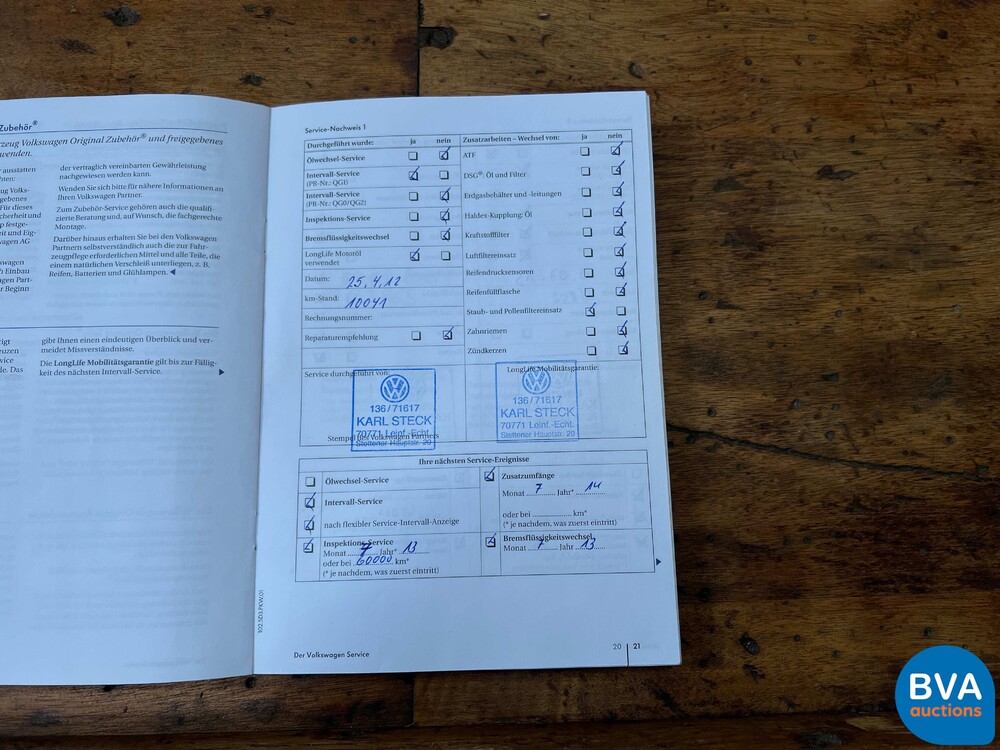 Zubehör®
rzeug Volkswagen Original Zubehör® und freigegebenes
wenden.
ausstatten
hten:
ug Volks-
gebenes
Für dieses
cherheit und
p festge-
eit und Eig-
wagen AG
wagen
h Einbau
gen Part-
r Beginn
der vertraglich vereinbarten Gewährleistung
nachgewiesen werden kann.
Wenden Sie sich bitte für nähere Informationen an
Ihren Volkswagen Partner.
Zum Zubehör-Service gehören auch die qualifi-
zierte Beratung und, auf Wunsch, die fachgerechte
Montage.
Darüber hinaus erhalten Sie bei den Volkswagen
Partnern selbstverständlich auch die zur Fahr-
zeugpflege erforderlichen Mittel und alle Teile, die
einem natürlichen Verschleiß unterliegen, z. B.
Reifen, Batterien und Glühlampen. ◀
igt
euzen
vice
de. Das
gibt Ihnen einen eindeutigen Überblick und ver-
meidet Missverständnisse.
Die LongLife Mobilitätsgarantie gilt bis zur Fällig-
keit des nächsten Intervall-Service.
Service-Nachweis 1
Durchgeführt wurde: ja nein
Ölwechsel-Service
Intervall-Service
(PR-Nr.: QG1)
Intervall-Service
(PR-Nr.: QG0/QG2)
Inspektions-Service
Bremsflüssigkeitswechsel
LongLife Motoröl
verwendet
Datum: 25.4.12
km-Stand: 10041
Rechnungsnummer:
Reparaturempfehlung
Zusatzarbeiten – Wechsel von: ja nein
ATF
DSG®: Öl und Filter
Erdgasbehälter und -leitungen
Haldex-Kupplung: Öl
Kraftstofffilter
Luftfiltereinsatz
Reifendrucksensoren
Reifenfüllflasche
Staub- und Pollenfiltereinsatz
Zahnriemen
Zündkerzen
Service durchgeführt von:
136/71617
KARL STECK
70771 Leinf.-Echt.
Stettener Hauptstr. 20
Stempel des Volkswagen Partners
LongLife Mobilitätsgarantie:
136/71617
KARL STECK
70771 Leinf.-Echt.
Stettener Hauptstr. 20
Ihre nächsten Service-Ereignisse
Ölwechsel-Service
Intervall-Service
nach flexibler Service-Intervall-Anzeige
Inspektions-Service
Monat 7 Jahr* 13
oder bei 60000 km*
(* je nachdem, was zuerst eintritt)
Zusatzumfänge
Monat 7 Jahr* 14
oder bei km*
(* je nachdem, was zuerst eintritt)
Bremsflüssigkeitswechsel
Monat 7 Jahr 13
102.5D3.PKW.01
Der Volkswagen Service
20 21
BVA
auctions